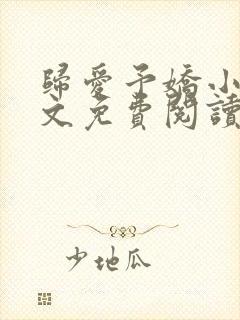 歸愛予嬌小
文免費閱讀
少地瓜